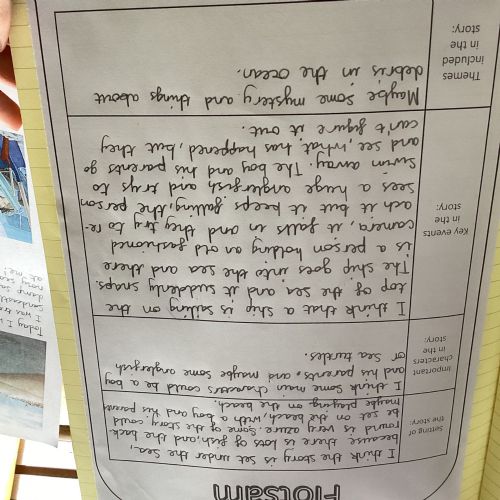 Flotsam
Setting of
the story:
I think the story is set under the sea,
because there is lots of fish and the back
round is very azure. Some of the story could
be set on the beach, with a boy and his parents
maybe playing on the beach.
Important
characters
in the
story:
I think some main characters could be a boy
and his parents. and maybe some anglerfish
or sea turtles.
Key events
in the
story:
I think that a ship is sailing on the
top of the sea and it suddenly snaps.
The ship goes into the sea and there
is a person holding an old fashioned
camera, it falls in and they try to re-
ach it but it keeps falling, the person
sees a huge anglerfish and trys to
swim away. The boy and his parents go
and see what has happened, but they
can't figure it out.
Themes
included
in the
story:
Maybe some mystery and things about
debris in the ocean.
Today I
I was
many sea
at me